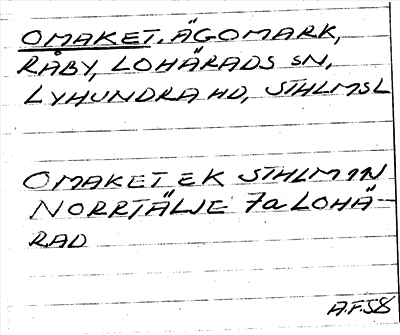 OMAKET. ÄGOMARK,
RÅBY, LOHÄRADS SN,
LYHUNDRA HD, STHLMSL
OMAKET EK STHLM 11N
NORRTÄLJE 7a LOHÄ-
RAD
A.F.58